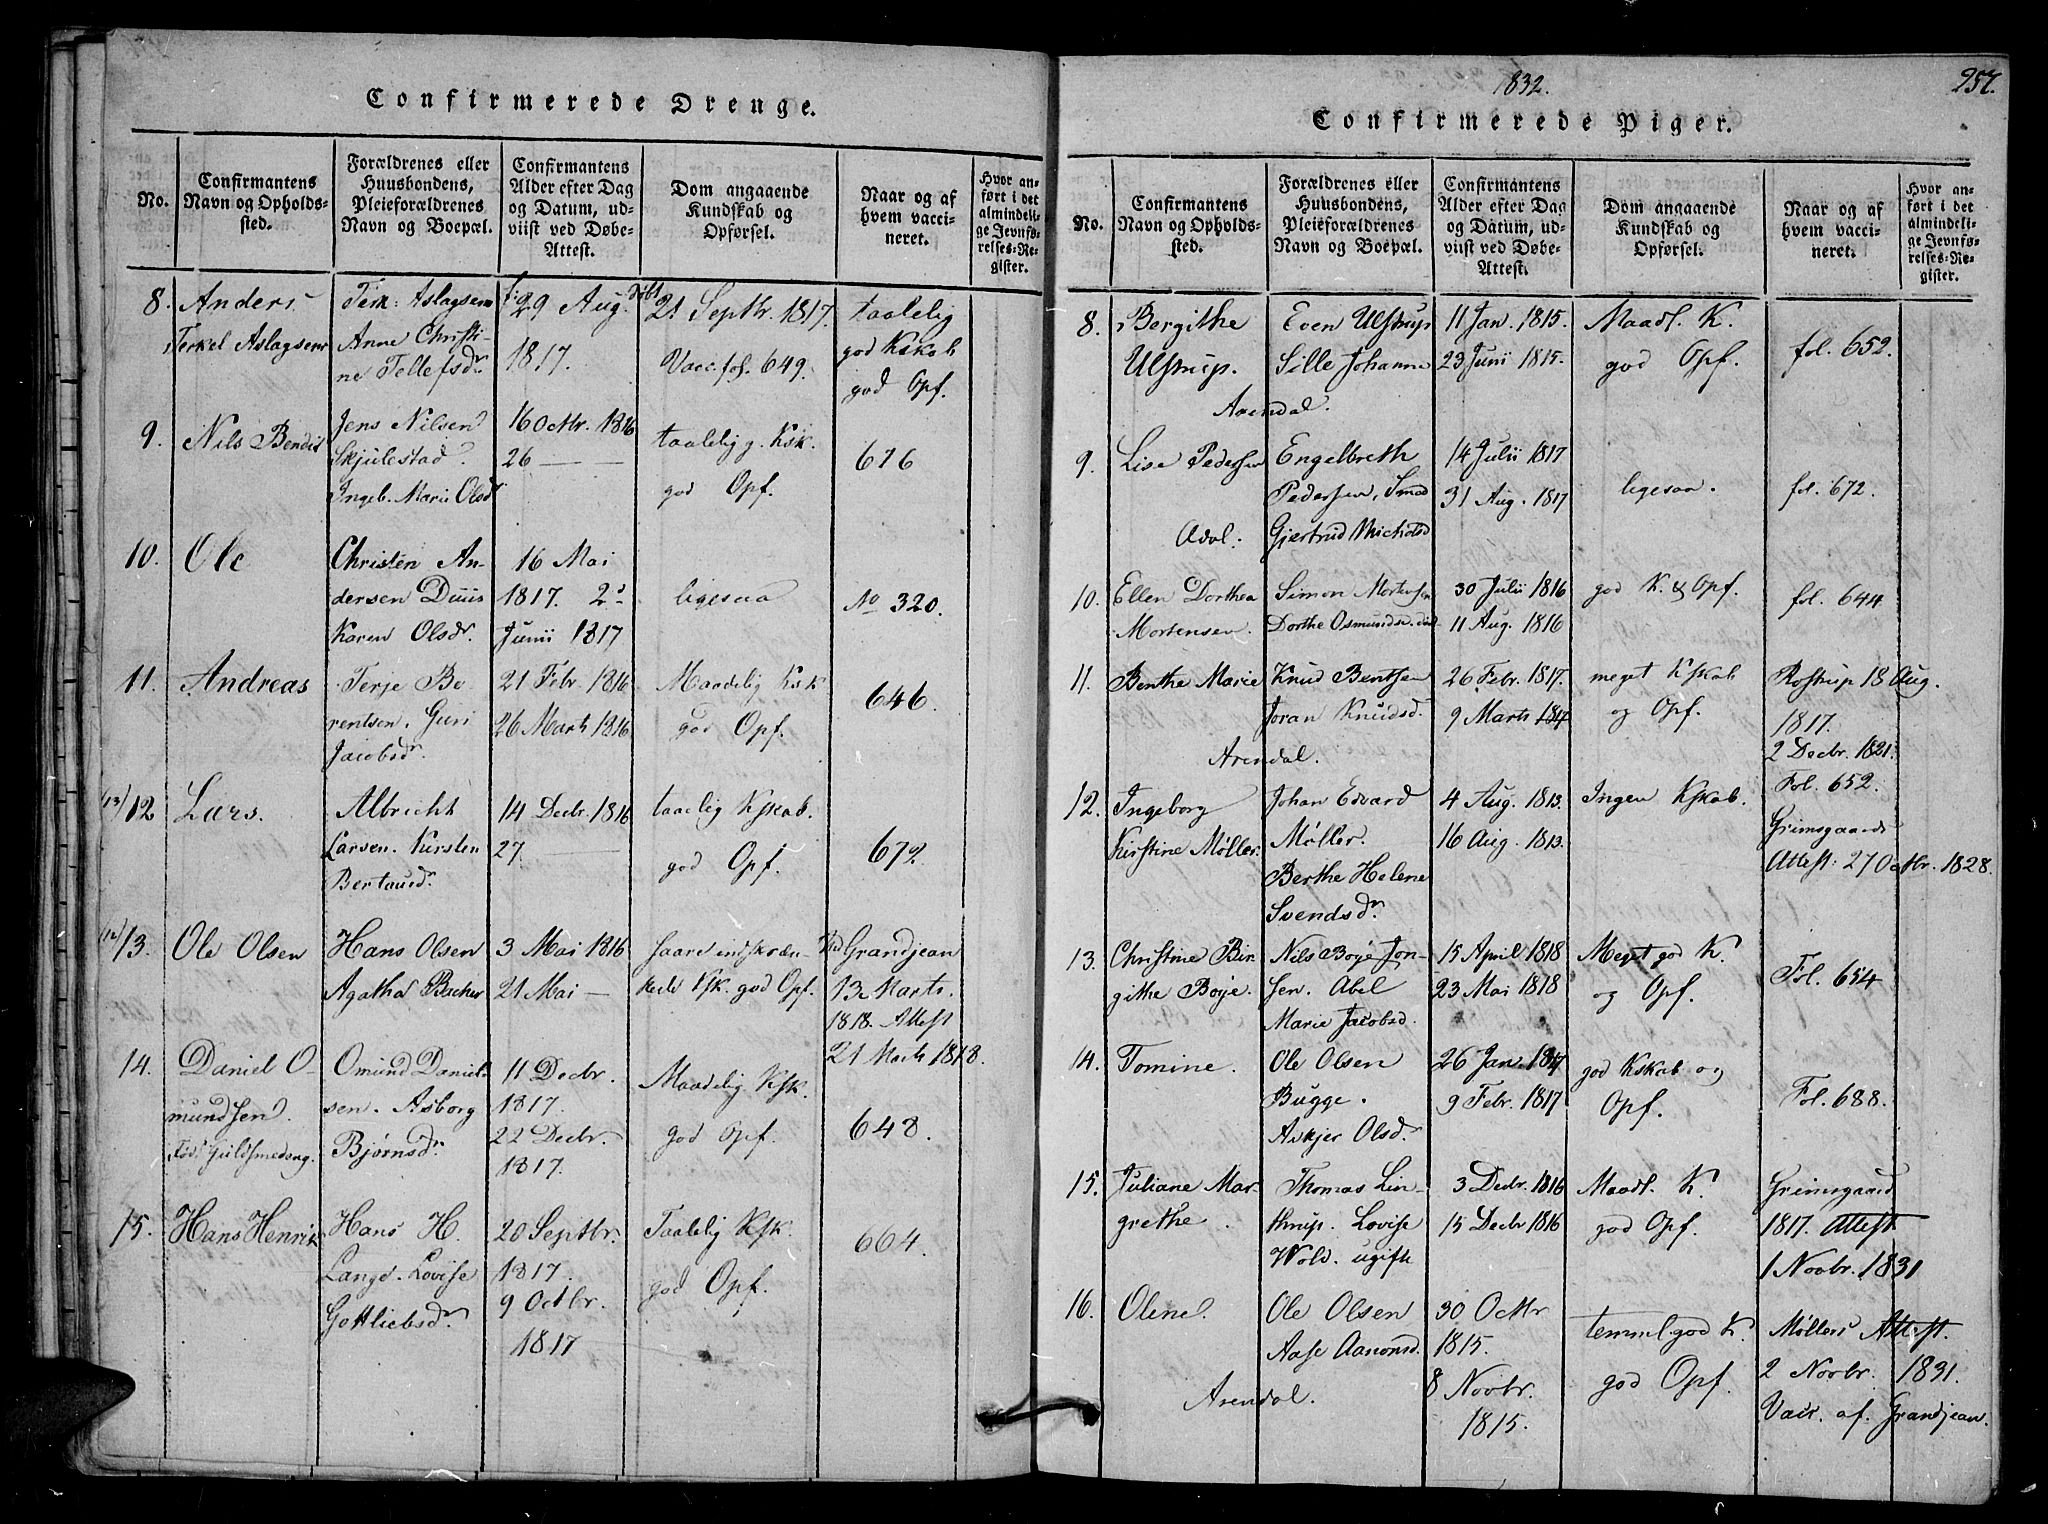 Confirmerede Drenge.
No.
Confirmantens
Navn og Opholds-
sted.
Forældrenes eller
Huusbondens,
Pleieforældrenes
Navn og Boepæl.
Confirmantens
Alder efter Dag
og Datum, ud-
viist ved Døbe-
Attest.
Dom angaaende
Kundskab og
Opførsel.
Naar og af
hvem vacci-
neret.
Hvor an-
ført i det
almindeli-
ge Jevnfø-
relses-Re-
gister.
8.
Anders
Terkel Aslagsen
Terk: Aslagsen
Anne Christi-
ne Tellefsdr
f. 29 Aug. døbt
1817.
21 Septbr. 1817.
Vacc. fol. 649.
taalelig
god Kskab
god Opf.
9.
Nils Bendix
Jens Nilsen
Skjulestad.
Ingeb. Marie Olsd
16 Octbr. 1816
26 —
taalelig g. Ksk.
god Opf.
676
10.
Ole
Christen An-
dersen Duus
Karen Olsdr.
16 Mai
1817. 2d
Junii 1817
ligesaa
No 320.
11.
Andreas
Terje Be
rentsen. Guri
Jacobsdr
21 Febr. 1816
26 Marts 1816
Maadelig Ksk
god Opf.
646.
(13) 12
Lars.
Albrecht
Larsen. Kirsten
14 Decbr. 1816
27 —
taalelig Kskab.
god Opf.
672.
(12) 13.
Ole Olsen
Hans Olsen
Agatha Bacher
3 Mai 1816
21 Mai —
saare indskræn-
kede Ksk. god Opf.
Grandjean
13 Marts.
1818. Attest
21 Marts 1818.
14.
Daniel O-
mundsen.
Omund Daniel-
sen. Asborg
Bjørnsdr
11 Decbr.
1817.
22 Decbr.
1817.
Maadelig Ksk.
god Opf.
648.
15.
Hans Henrik
Hans H.
Lange. Lovise
Gottliebsdr.
20 Septbr.
1817.
9 Octbr.
1817
Taalelig Ksk.
god Opf.
664.
1832.
257.
Confirmerede Piger.
No.
Confirmantens
Navn og Opholds-
sted.
Forældrenes eller
Huusbondens,
Pleieforældrenes
Navn og Boepæl.
Confirmantens
Alder efter Dag
og Datum, ud-
viist ved Døbe-
Attest.
Dom angaaende
Kundskab og
Opførsel.
Naar og af
hvem vacci-
neret.
Hvor an-
ført i det
almindeli-
ge Jevnfø-
relses-Re-
gister.
8.
Bergithe
Ulstrup.
Even Ulstrup
Sille Johanne
Arendal.
11 Jan. 1815.
23 Junii 1815.
Maadl. K.
god Opf.
fol. 652.
9.
Lise Pedersen
Engelbreth
Pedersen, Smed
Gjertrud Michelsd
14 Julii 1817
31 Aug. 1817
ligesaa.
fol. 672.
10.
Ellen Dorthea
Mortensen.
Simon Mortensen
Dorthe Osmundsd.
30 Julii 1816
11 Aug. 1816
god K. & Opf.
fol. 644
11.
Benthe Marie
Knud Bentsen
Joran Knudsd.
Arendal.
26 Febr. 1817.
9 Marts 1817
meget Kskab
og Opf.
Rostrup 18 Aug.
1817.
2 Decbr. 1821.
Fol. 652.
12.
Ingeborg
Kirstine Møller.
Johan Edvard
Møller.
Berthe Helene
Svendsdr.
4 Aug. 1813.
16 Aug. 1813.
Ingen Kskab.
Grimsgaards
Attest: 27 Octbr. 1828.
13.
Christine Bir-
githe Boye.
Nils Boye Jon-
sen. Abel
Marie Jacobsd.
15 April 1818
23 Mai 1818
Meget god K.
og Opf.
Fol. 654
14.
Tomine.
Ole Olsen
Bugge.
Askjer Olsd.
26 Jan. 1817
9 Febr. 1817
god Kskab og
Opf.
Fol. 688.
15.
Juliane Mar-
grethe.
Thomas Lin-
thrup. Lovise
Wold. ugift
3 Decbr. 1816
15 Decbr 1816
Maadl. K.
god Opf.
Grimsgaard
1817. Attest
1 Novbr. 1831
16.
Olene.
Ole Olsen
Aase Aanonsd.
Arendal.
30 Octbr
1815.
8 Novbr.
1815.
temmel god K.
god Opf.
Møllers Attest.
2 Novbr. 1831.
Vacc. af. Grandjean.